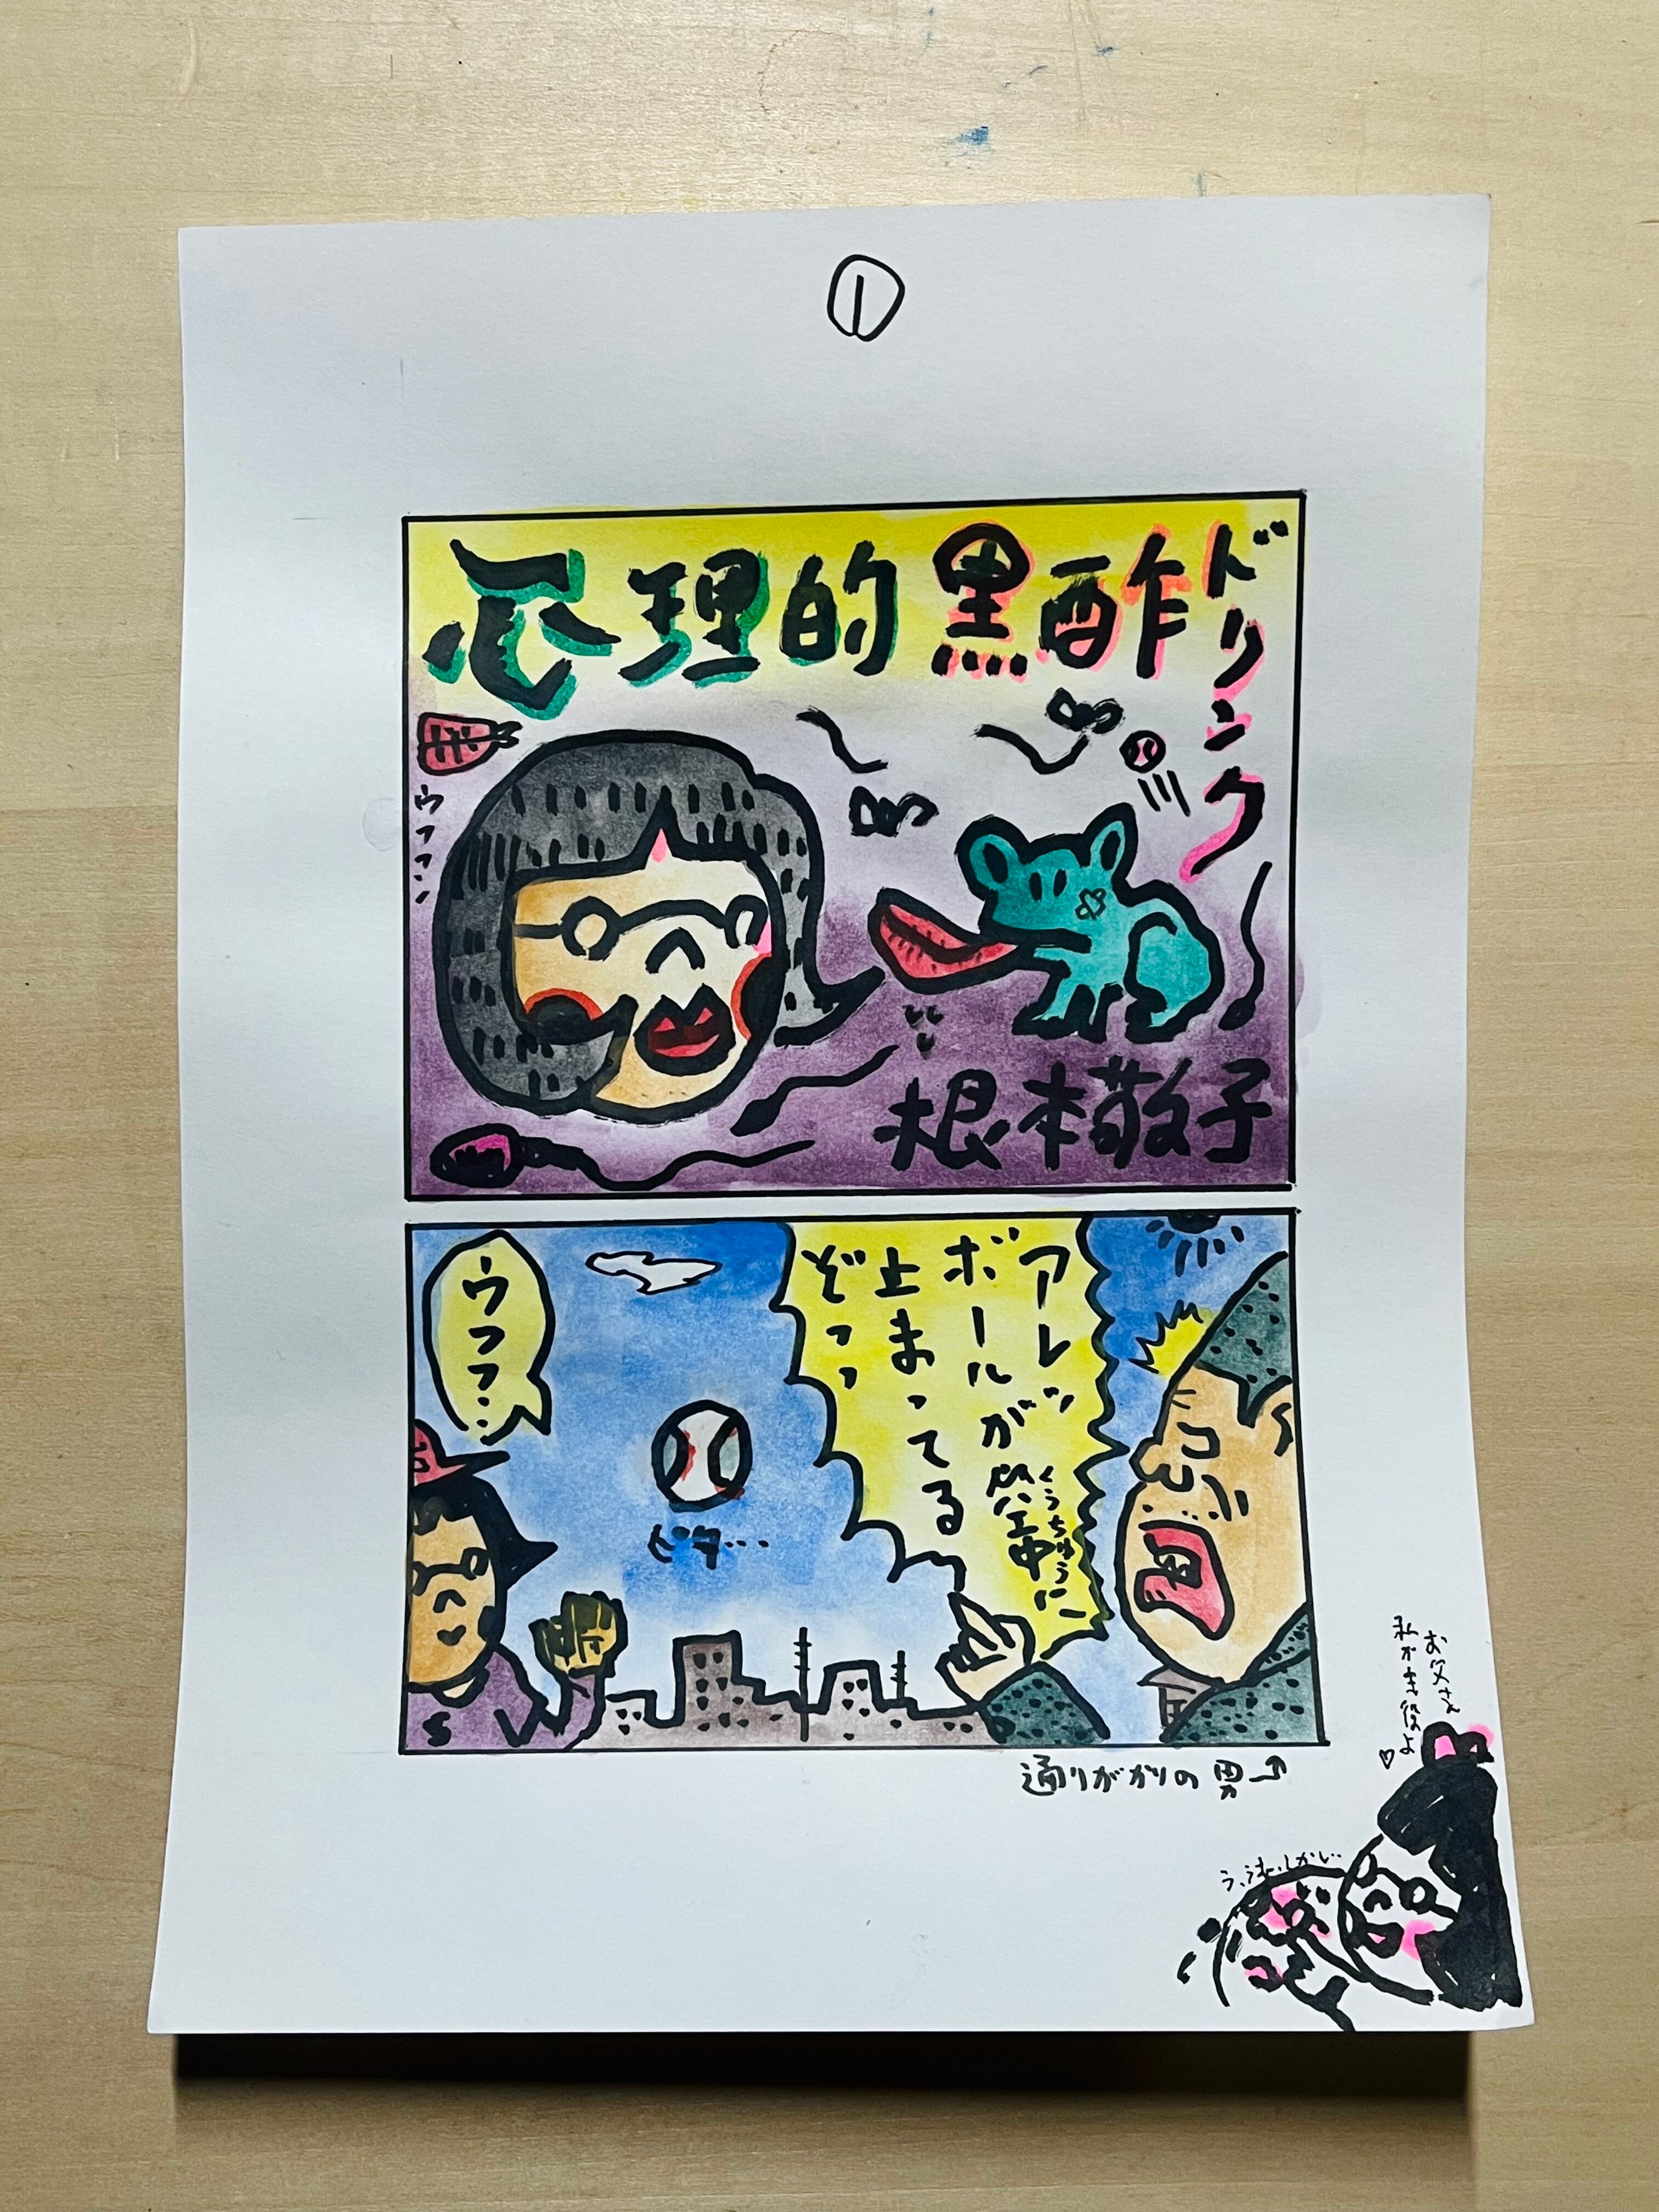 ①
心理的黒酢ドリンク
ウフフン
根本敬子
アレッ
ボールが空中に
くうちゅう
止まってる
ぞっっ
ウフフ…
ピタ…
通りがかりの男
お父さん
私が主役よ♡